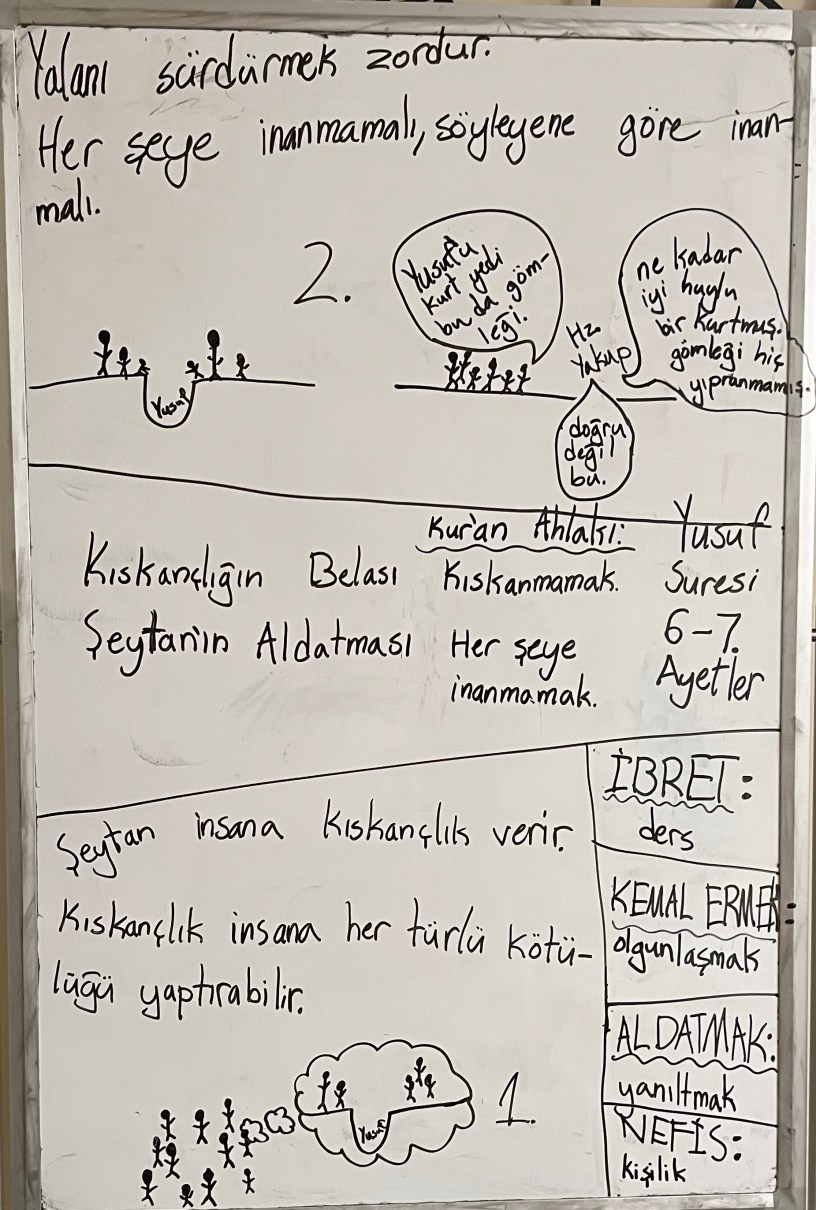 Yalanı sürdürmek zordur.
Her şeye inanmamalı, söyleyene göre inan-
malı.
2.
Yusuf'u
kurt yedi
bu da göm-
leği.
Hz.
Yakup
ne kadar
iyi huylu
bir kurtmuş.
gömleği hiç
yıpranmamış.
Yusuf
doğru
değil
bu.
Kıskançlığın Belası
Şeytan'ın Aldatması
Kur'an Ahlakı:
Kıskanmamak.
Her şeye
inanmamak.
Yusuf
Suresi
6-7.
Ayetler
Şeytan insana kıskançlık verir.
Kıskançlık insana her türlü kötü-
lüğü yaptırabilir.
Yusuf
1.
İBRET:
ders
KEMAL ERMEK:
olgunlaşmak
ALDATMAK:
yanıltmak
NEFİS:
kişilik